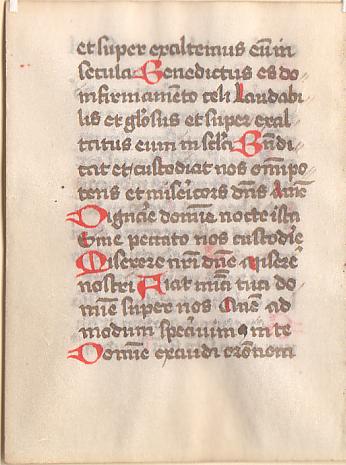 et super exaltemus eū in
secula Benedictus es do
in firmamēto celi Laudabi
lis et glōsus et super exal
tatus eum in seclā Bn̄di
cat et custodiat nos om̄ipo
tens et misēicors dn̄s Amē
Dignāe domīe nocte ista
sine peccato nos custodīe
Miserere nrī dn̄e miserē
nostri Fiat mīa tua do
mīe super nos Quē ad
modum sperāuimꝰ in te
Domīe exaudi orōnem